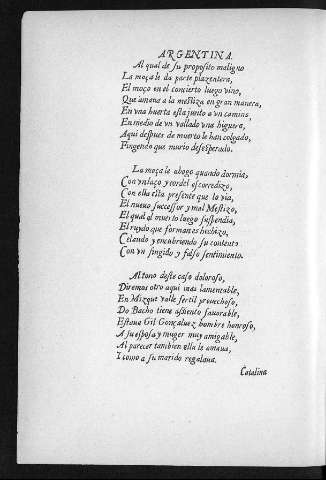 ARGENTINA.
Al qual de su proposito maligno
La moça le da parte plazentera,
El moço en el concierto luego vino,
Que amaua a la mestiza en gran manera,
En vna huerta esta junto a vn camino,
En medio de vn vallado vna higuera,
Aqui despues de muerto le han colgado,
Fingendo que murio desesperado.
La moça le ahogo quando dormia,
Con vn lazo y cordel escorredizo,
Con ella esta presente que la via,
El nueuo successor y mal Mestizo,
El qual al muerto luego suspendia,
El ruydo que forman es hechizo,
Celando y encubriendo su contento
Con vn fingido y falso sentimiento.
Al tono deste caso doloroso,
Diremos otro aqui mas lamentable,
En Mizque valle fertil prouechoso,
Do Bacho tiene assiento fauorable,
Estaua Gil Gonçaluez hombre honroso,
A su esposa y muger muy amigable,
Al parecer tambien ella le amaua,
Y como a su marido regalaua.
Catalina